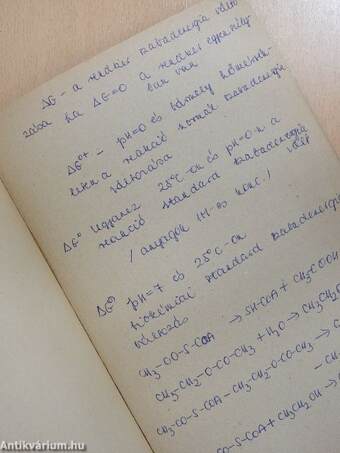 ΔG - a rendszer szabadenergia válto
zása ha ΔG=0 a rendszer egyensúly
ban van
ΔG°+ - pH=0 és bármely hőmérsék-
leten a reakció normál szabadenergia
változása
ΔG° ugyanez 25°C-on és pH=0-n a
reakció standard szabadenergia vált
/ anyagok 1M-os konc. /
pH=7 és 25°C-on
biokémiai standard szabadenergia
változás
CH3-CO-S-CoA → SH-CoA + CH3COOH
CH3-CH2-O-CO-CH3 + H2O → CH3CH2
CH3-CO-S-CoA - CH3-CH2-O-CO-CH3 →
CO-S-CoA + CH3CH2OH →
Antikvárium.hu